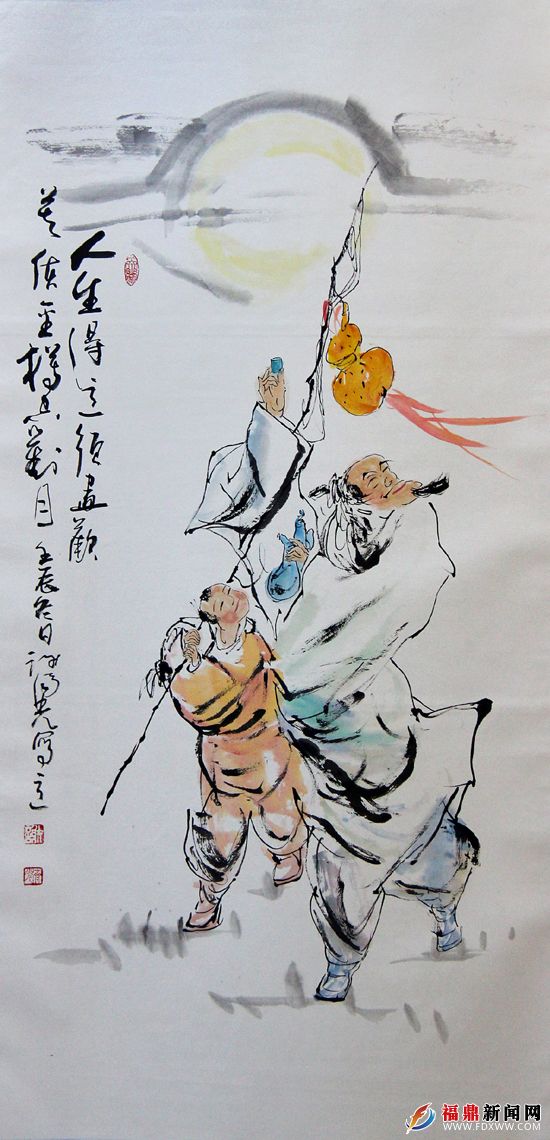 人生得意須盡歡
莫使金樽空對月 壬辰冬日 寫意
福鼎新闻网
WWW.FDXWW.COM